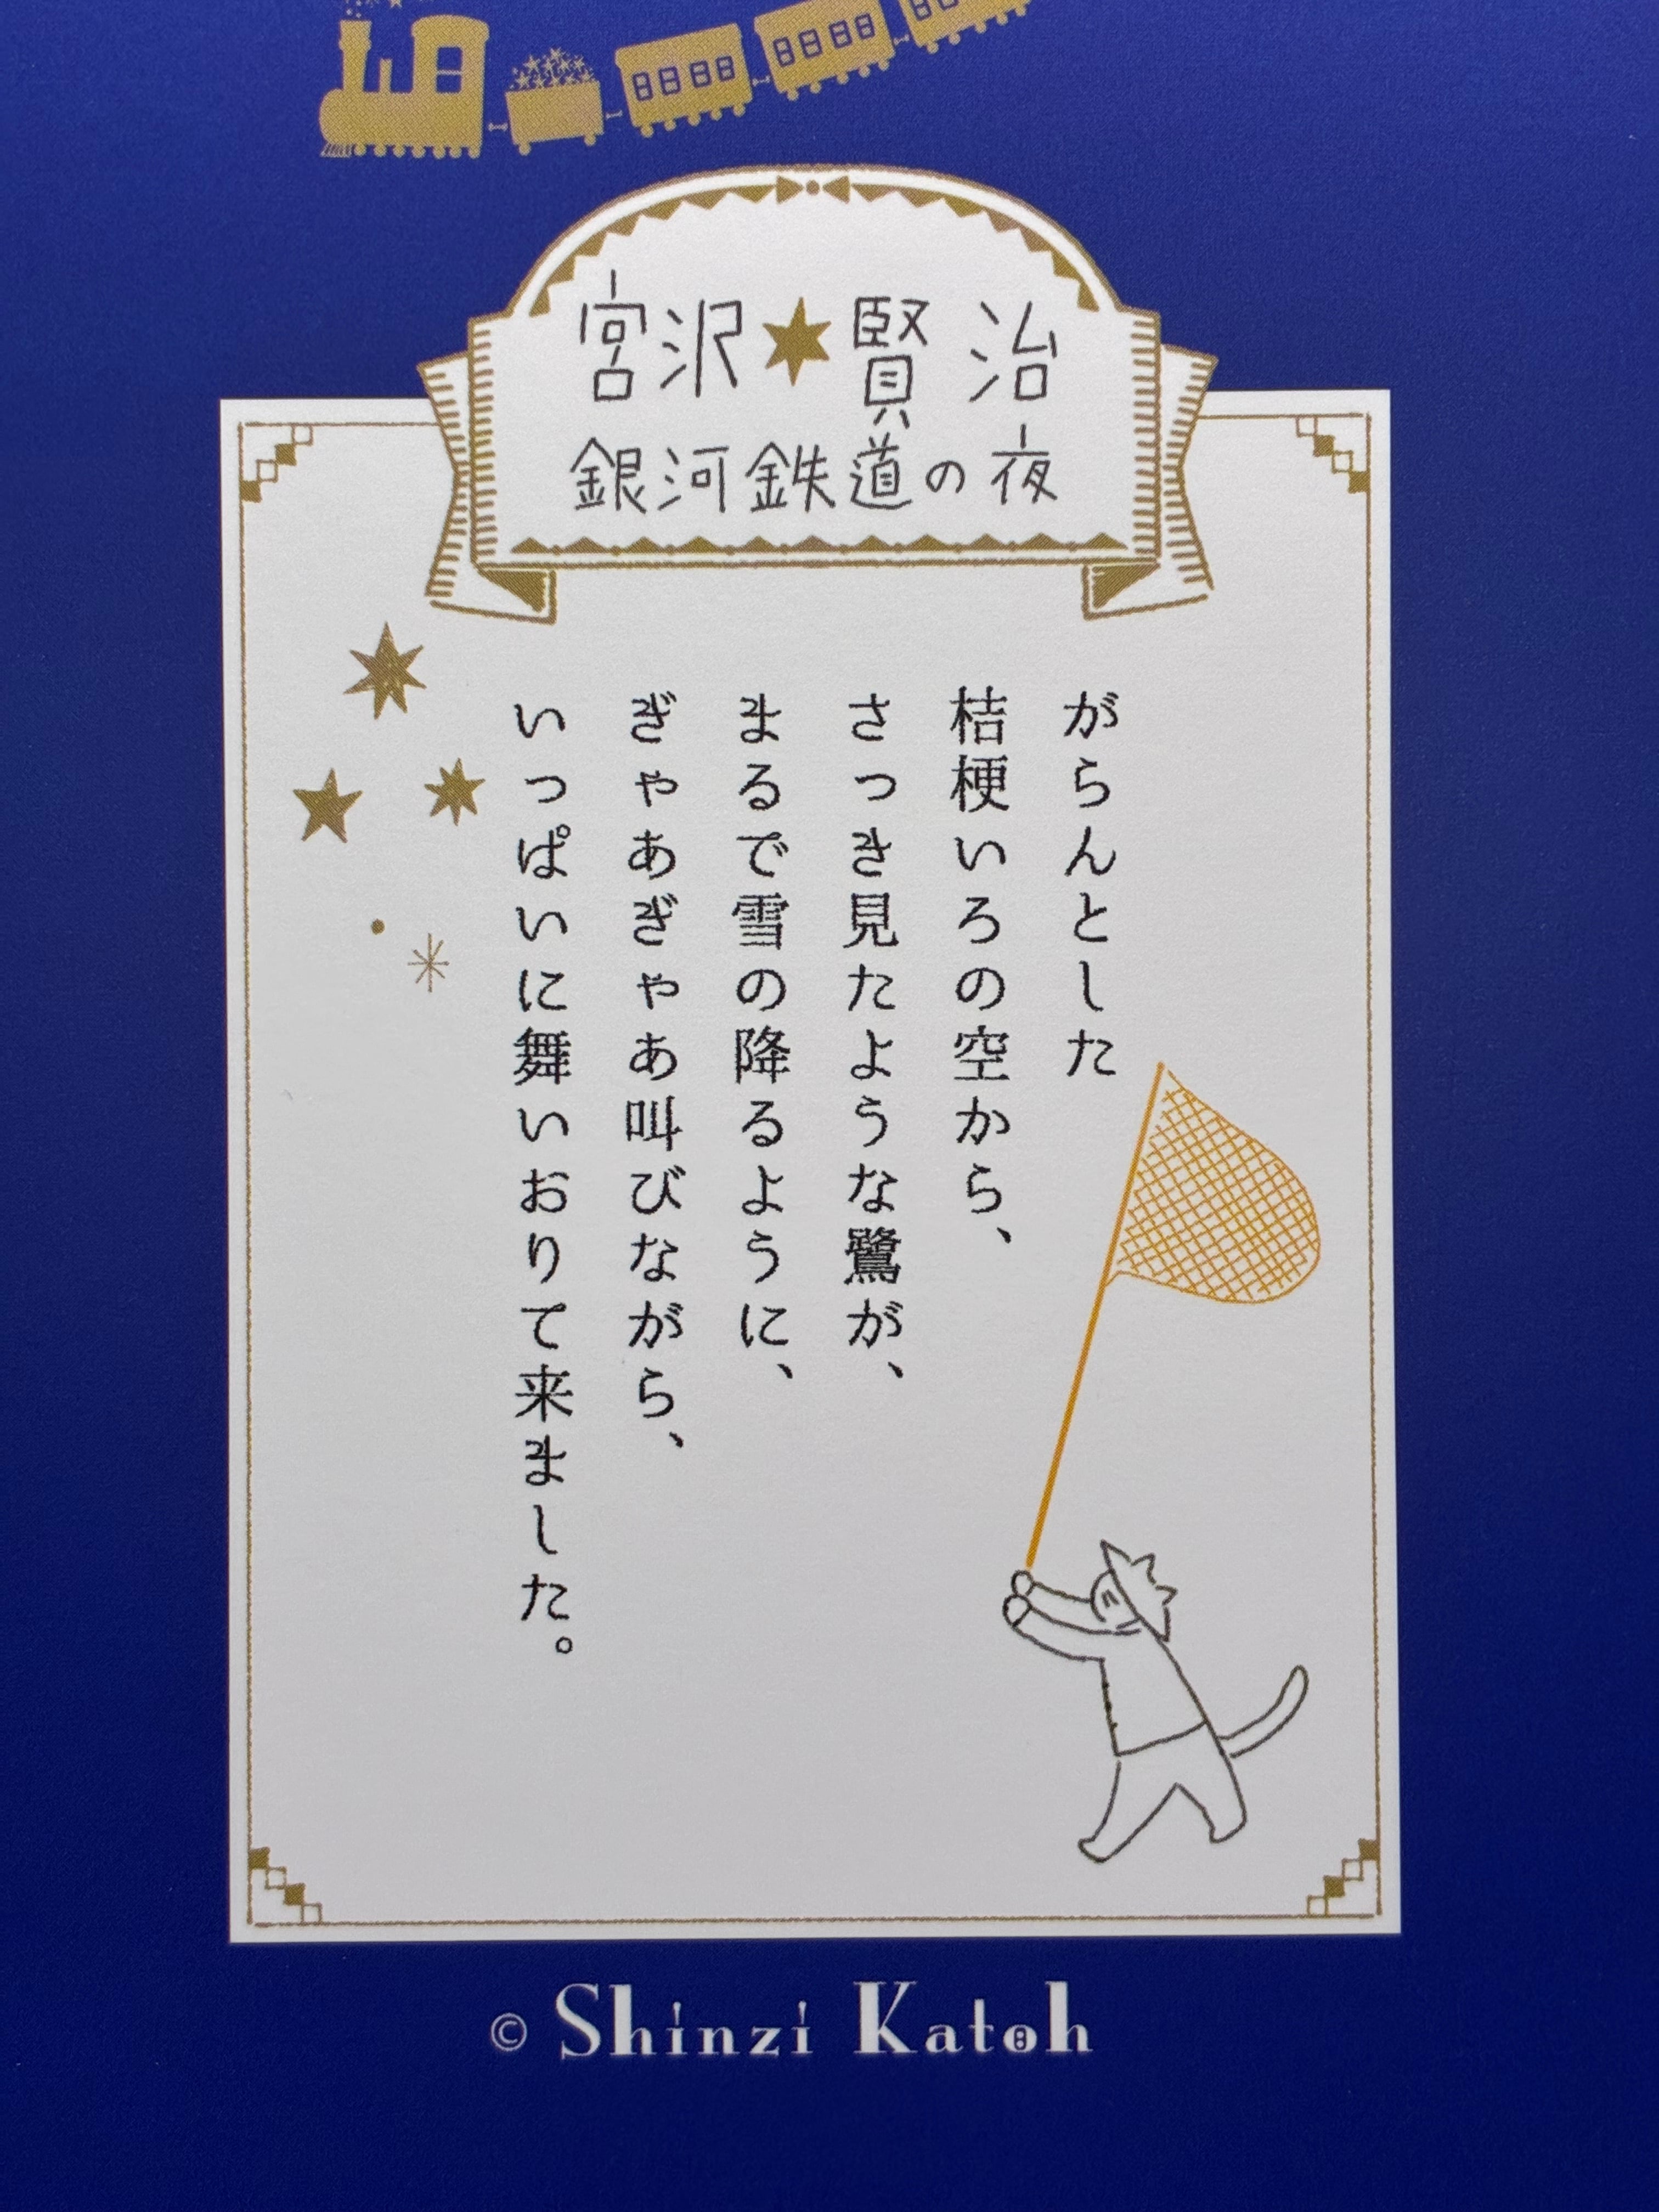 宮沢★賢治
銀河鉄道の夜
がらんとした
桔梗いろの空から、
さっき見たような鷺が、
まるで雪の降るように、
ぎゃあぎゃあ叫びながら、
いっぱいに舞いおりて来ました。
© Shinzi Katoh